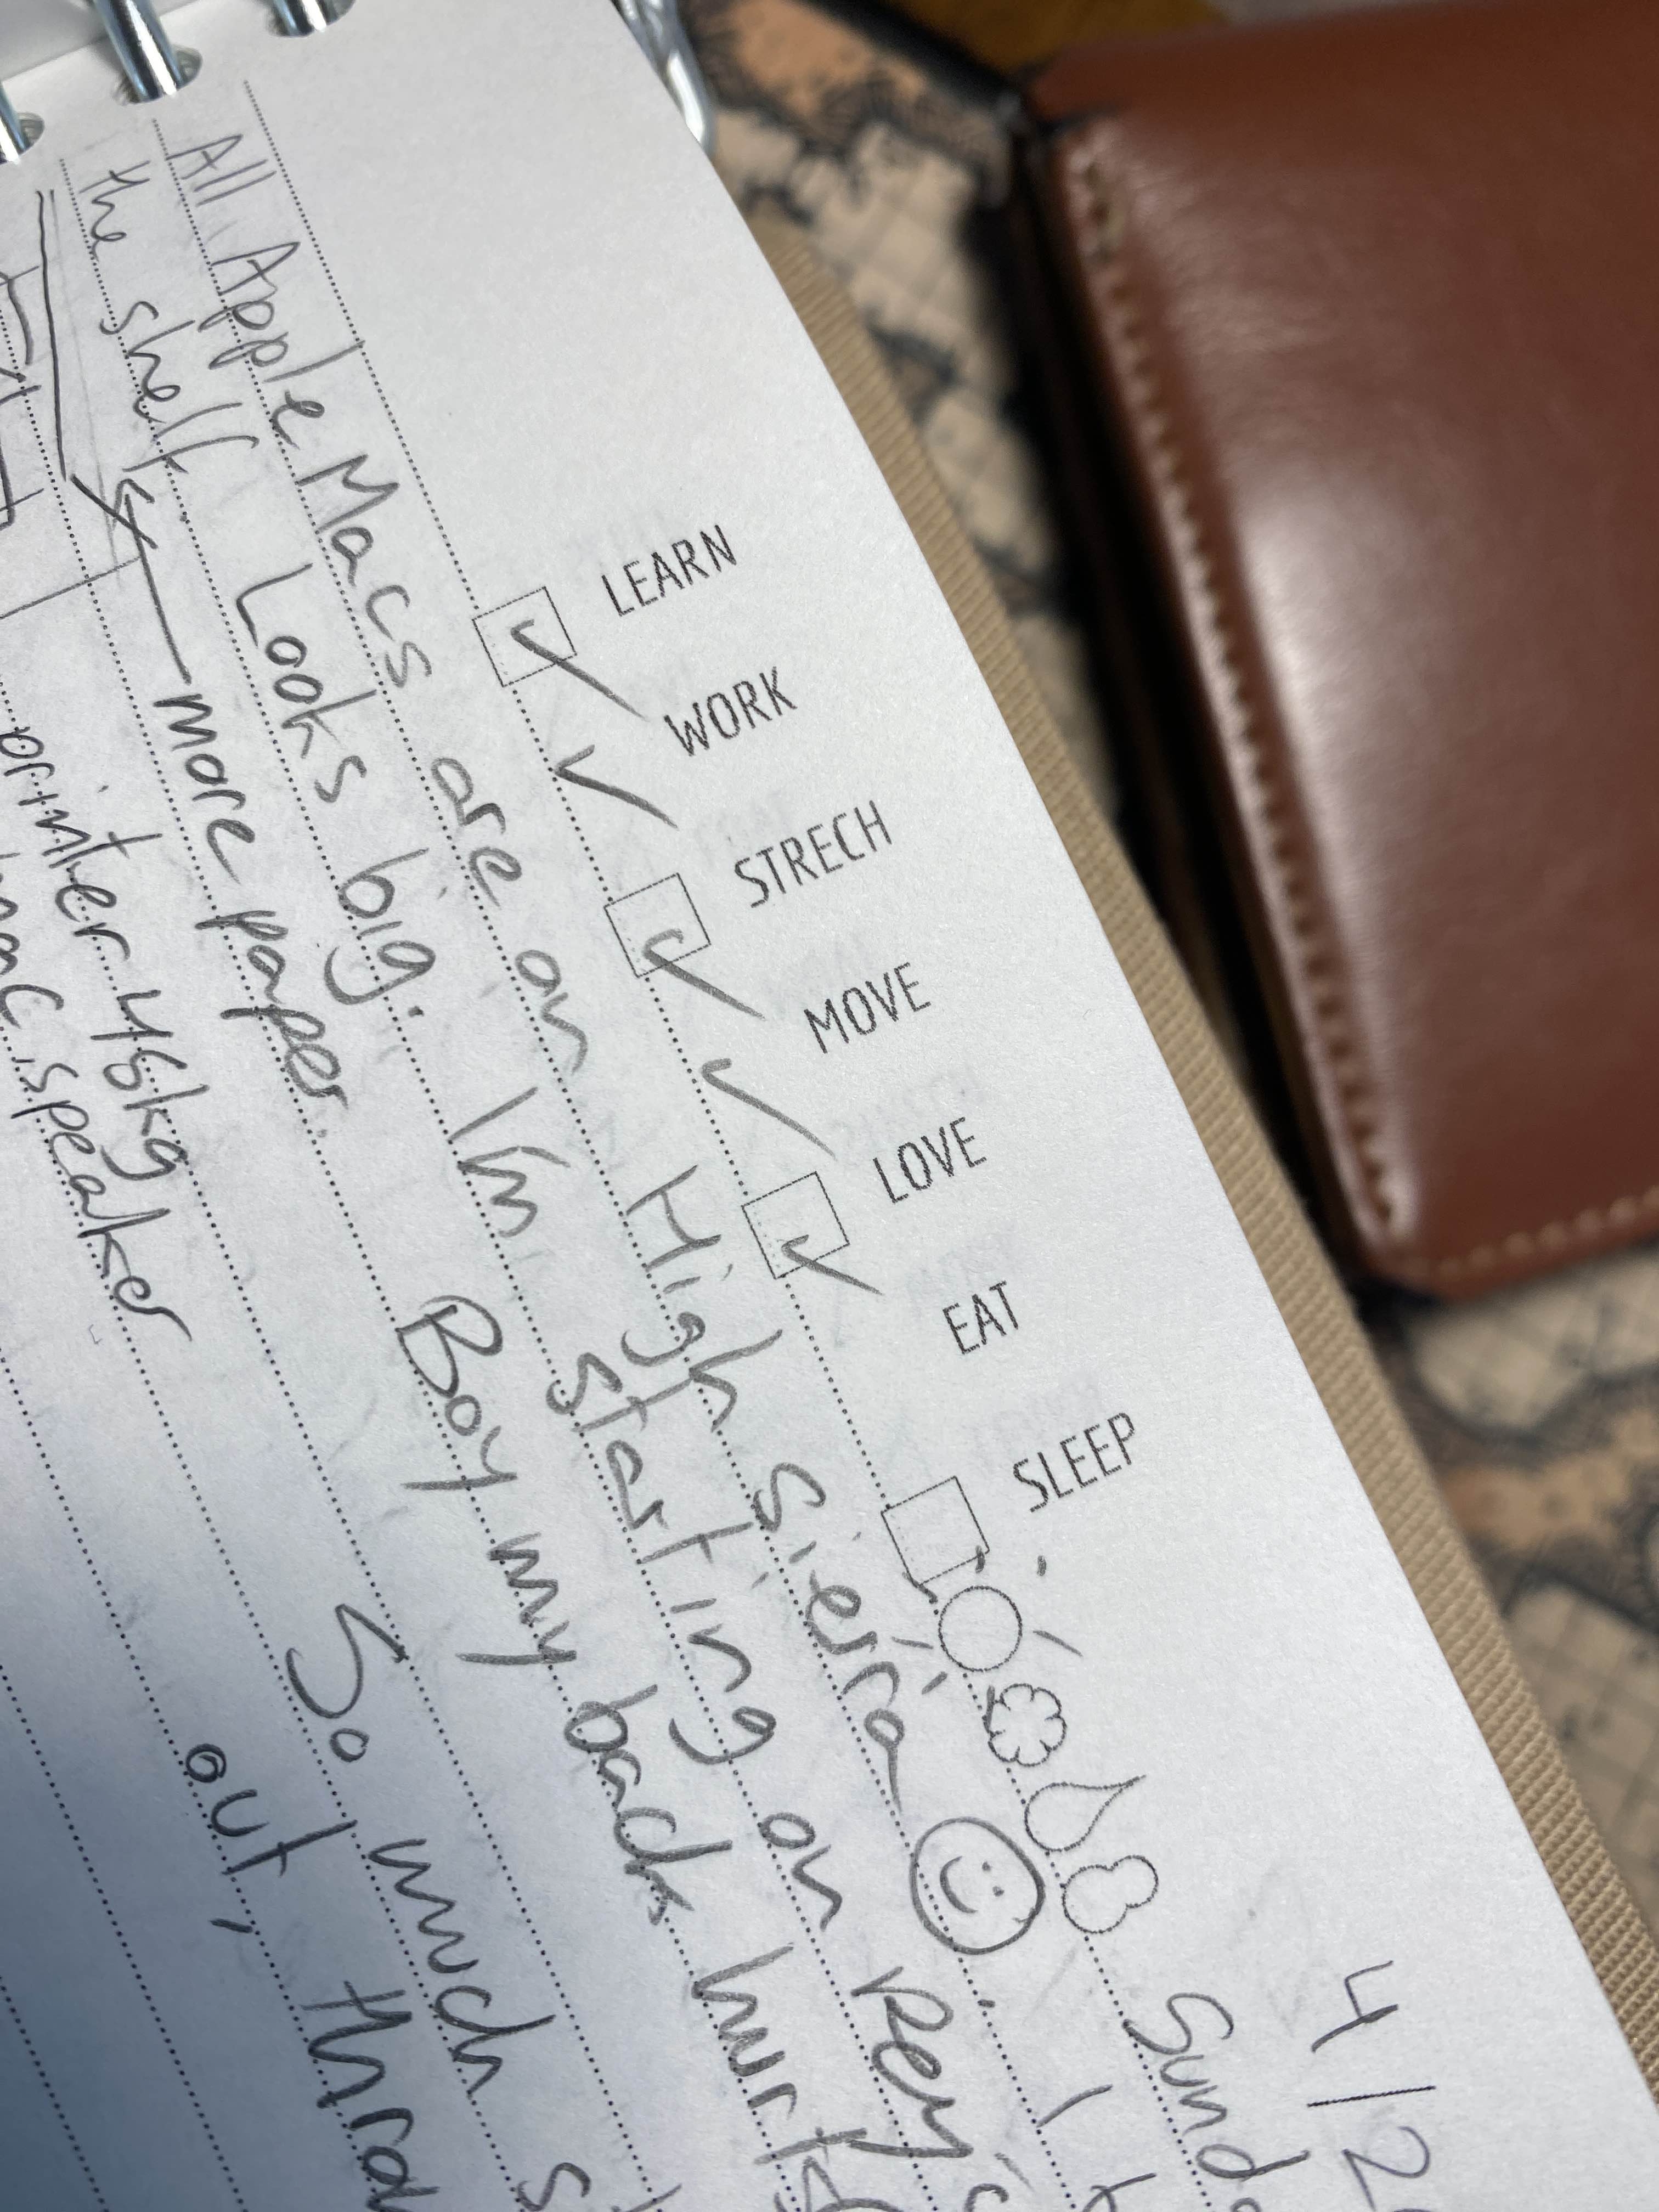 4/2
LEARN WORK STRECH MOVE LOVE EAT SLEEP
All Apple Macs are on High Sierra
the shelf. Looks big. I'm starting on
more paper. Boy my back hurts
printer 46kg So much
speaker out,